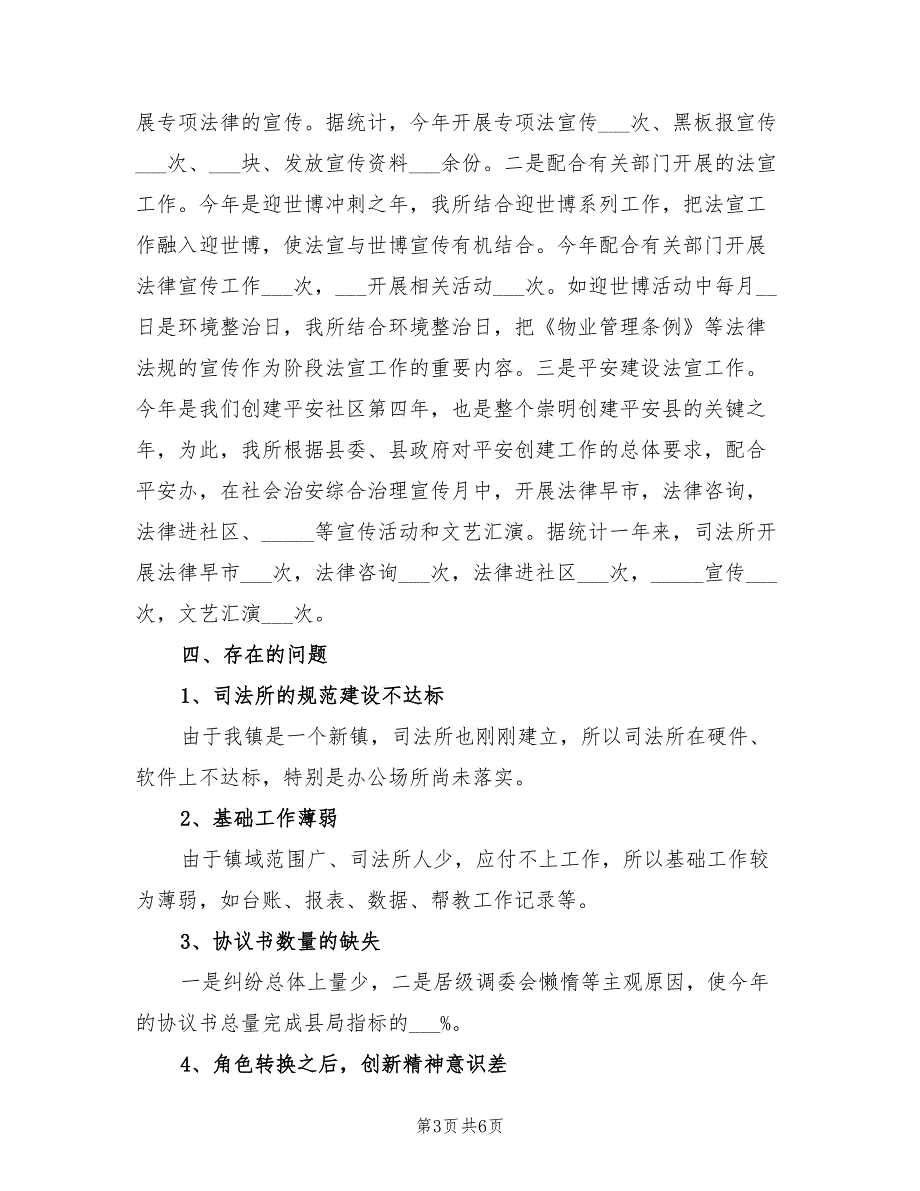 展专项法律的宣传。据统计，今年开展专项法宣传___次、黑板报宣传
___次、___块、发放宣传资料___余份。二是配合有关部门开展的法宣
工作。今年是迎世博冲刺之年，我所结合迎世博系列工作，把法宣工
作融入迎世博，使法宣与世博宣传有机结合。今年配合有关部门开展
法律宣传工作___次，___开展相关活动___次。如迎世博活动中每月__
日是环境整治日，我所结合环境整治日，把《物业管理条例》等法律
法规的宣传作为阶段法宣工作的重要内容。三是平安建设法宣工作。
今年是我们创建平安社区第四年，也是整个崇明创建平安县的关键之
年，为此，我所根据县委、县政府对平安创建工作的总体要求，配合
平安办，在社会治安综合治理宣传月中，开展法律早市，法律咨询，
法律进社区、_____等宣传活动和文艺汇演。据统计一年来，司法所开
展法律早市___次，法律咨询___次，法律进社区___次，_____宣传___
次，文艺汇演___次。
四、存在的问题
1、司法所的规范建设不达标
由于我镇是一个新镇，司法所也刚刚建立，所以司法所在硬件、
软件上不达标，特别是办公场所尚未落实。
2、基础工作薄弱
由于镇域范围广、司法所人少，应付不上工作，所以基础工作较
为薄弱，如台账、报表、数据、帮教工作记录等。
3、协议书数量的缺失
一是纠纷总体上量少，二是居级调委会懒惰等主观原因，使今年
的协议书总量完成县局指标的___%。
4、角色转换之后，创新精神意识差
第3页共6页